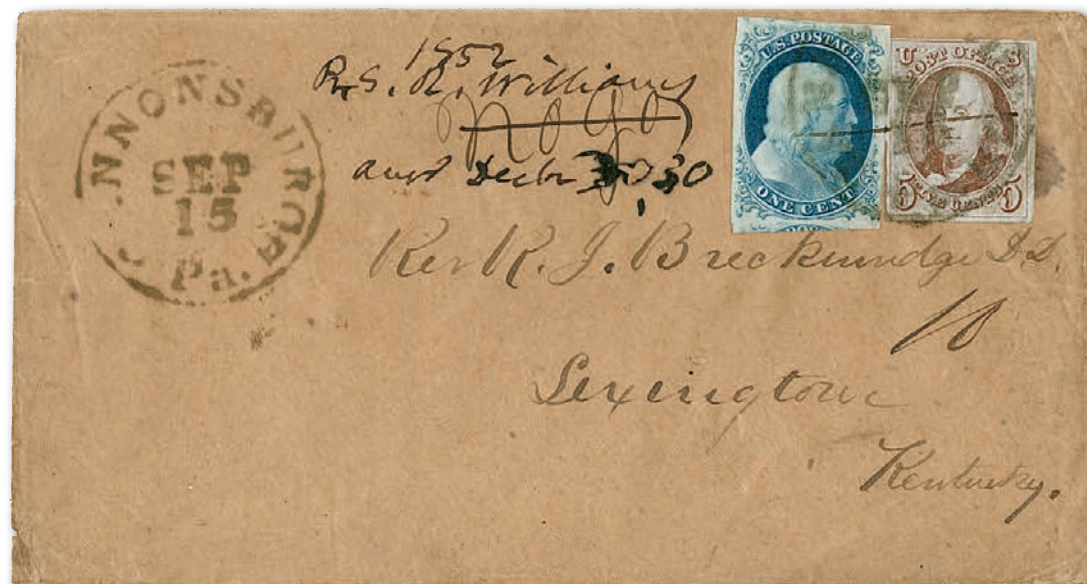 NNONSBURG
SEP
15
Pa.
1852
R. Williams
answd Decbr 30
U.S. POSTAGE
ONE CENT
U S
POST OFFICE
5 FIVE CENTS 5
Rev R. J. Breckinridge D.D.
10
Lexington
Kentucky.